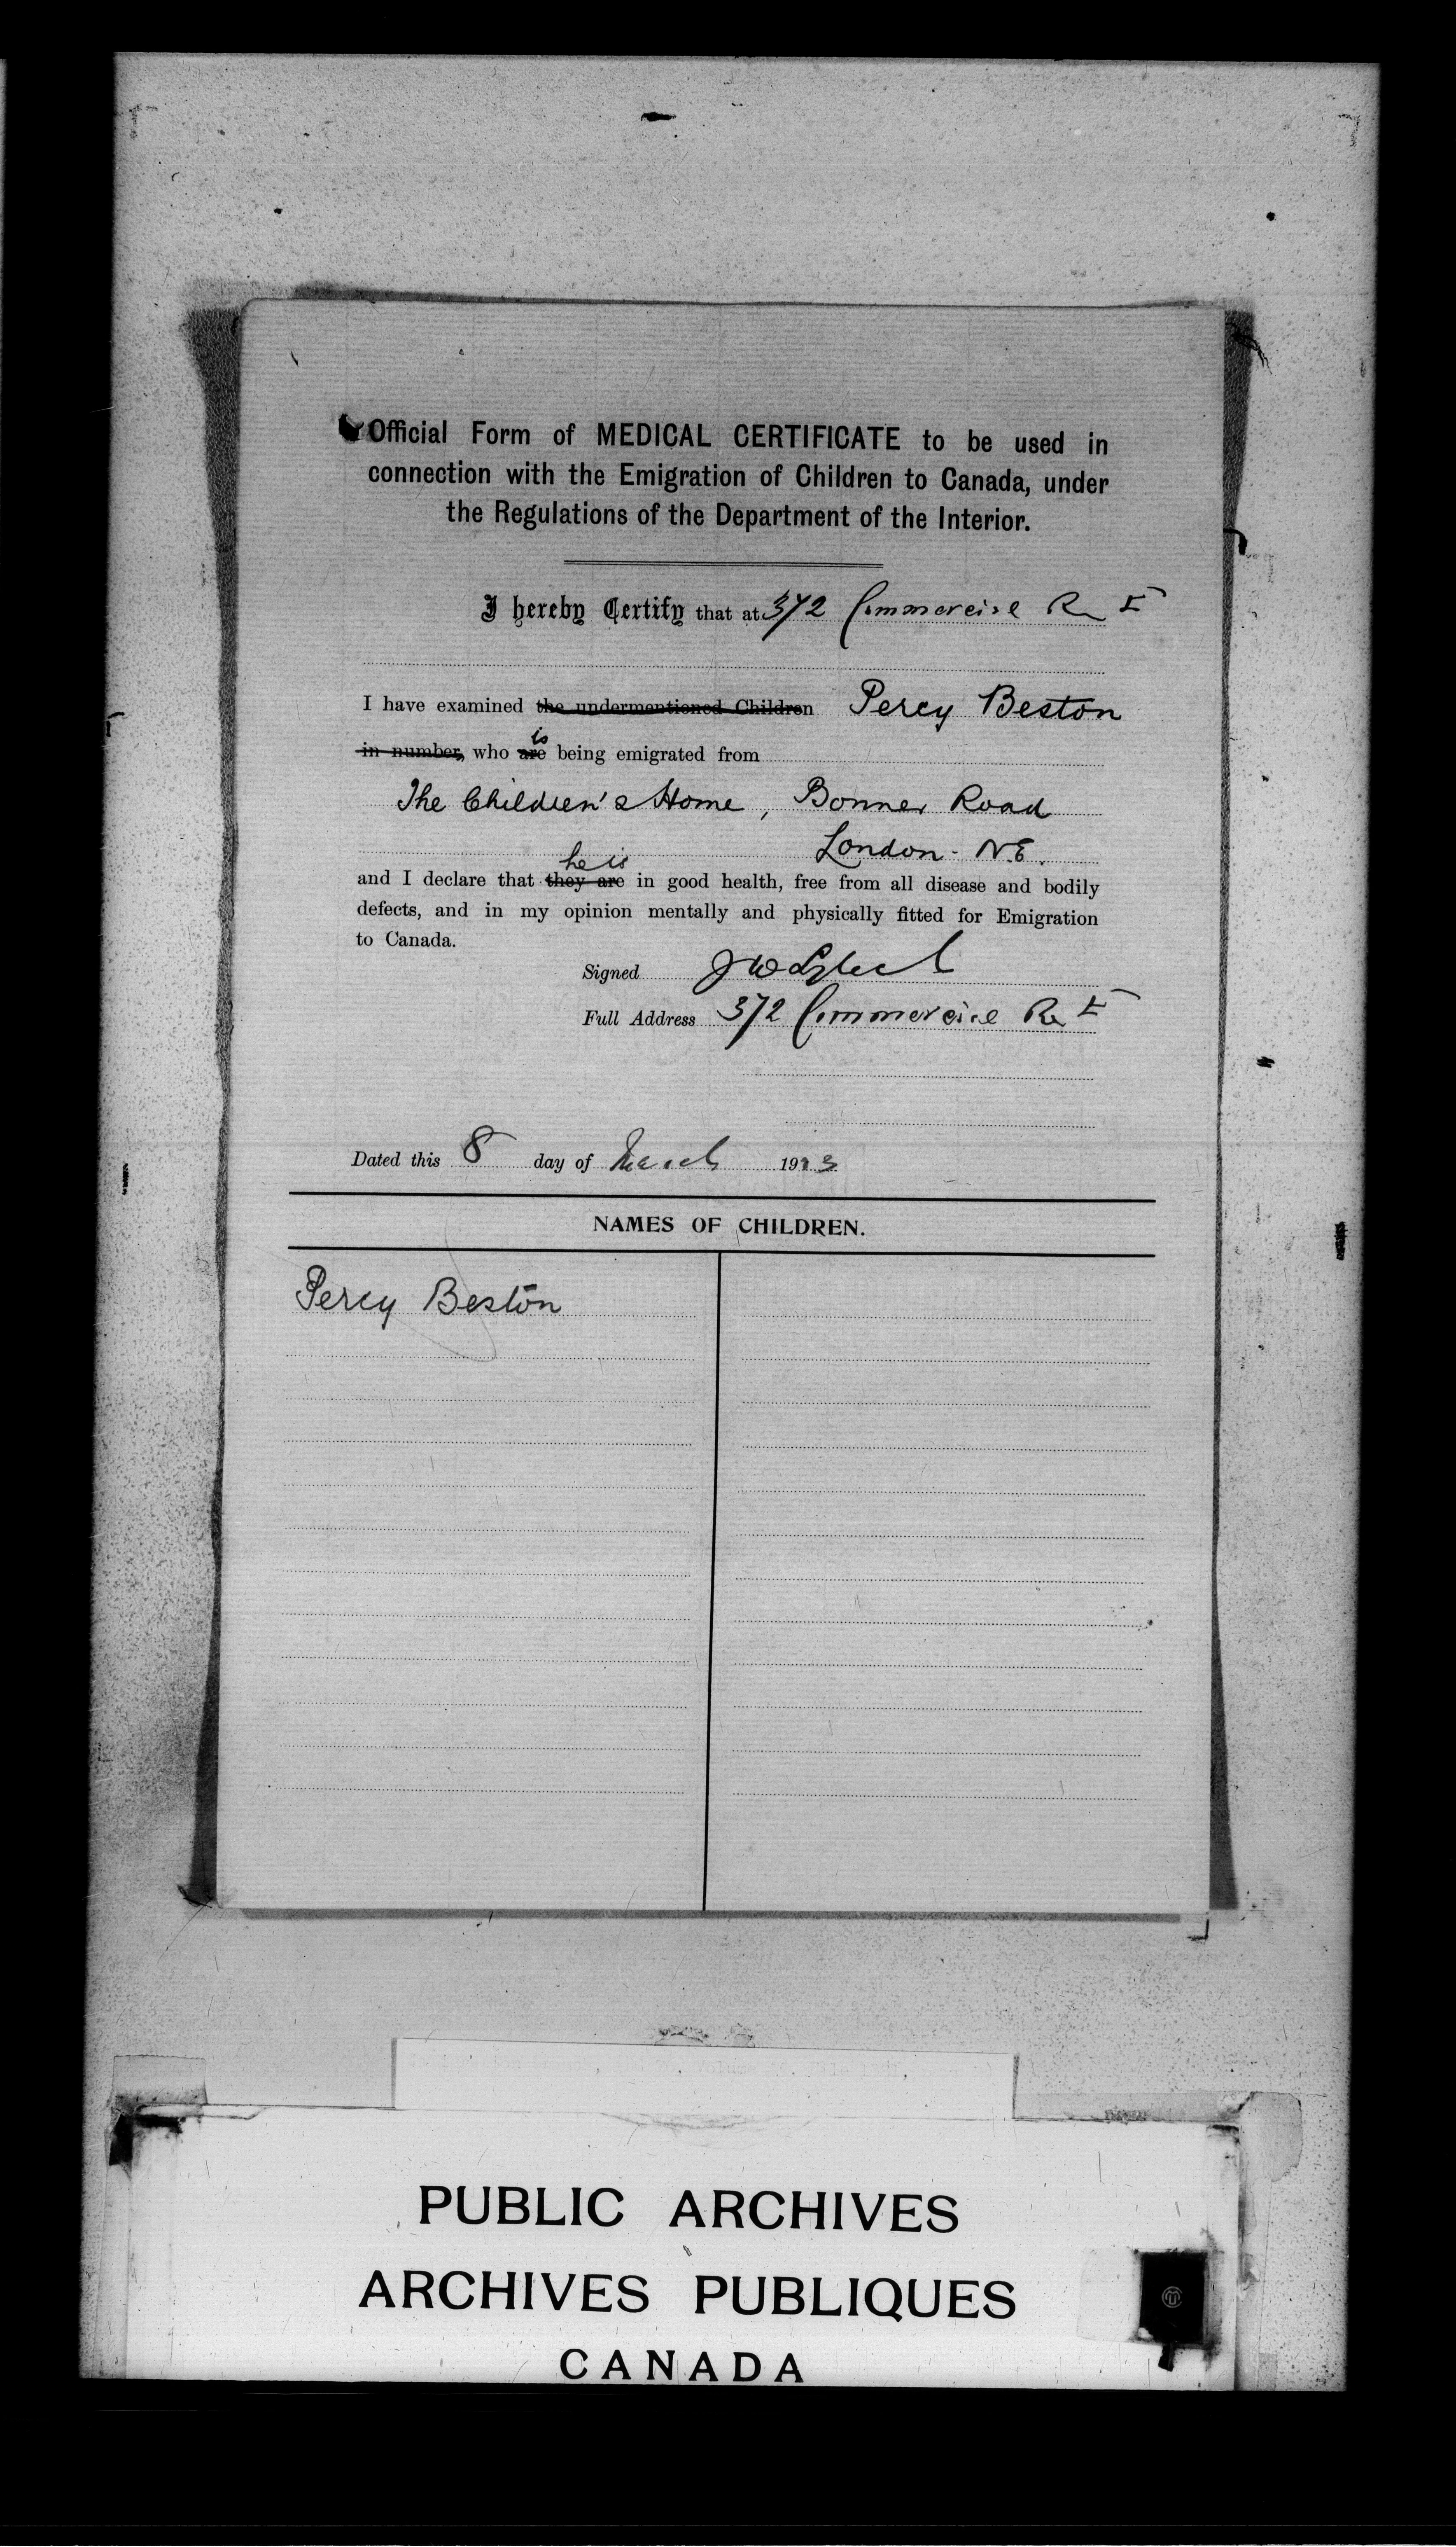 Official Form of MEDICAL CERTIFICATE to be used in
connection with the Emigration of Children to Canada, under
the Regulations of the Department of the Interior.
I hereby Certify that at 372 Commercial Rd E
I have examined the undermentioned Children Percy Beston
is
in number, who are being emigrated from
The Children's Home, Bonner Road
London - N.E.
he is
and I declare that they are in good health, free from all disease and bodily
defects, and in my opinion mentally and physically fitted for Emigration
to Canada.
Signed
Full Address 372 Commercial Rd E
Dated this 8 day of March 19
NAMES OF CHILDREN.
Percy Beston
PUBLIC ARCHIVES
ARCHIVES PUBLIQUES
CANADA